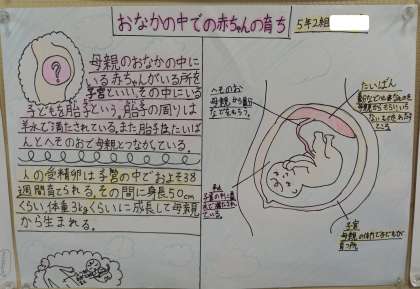 おなかの中での赤ちゃんの育ち
5年2組
?
母親のおなかの中に
いる赤ちゃんがいる所を
子宮といい、その中にいる
子どもを胎子という。胎子の周りは
羊水で満たされている。また胎子は、たいば
んとへそのおで母親とつながっている。
人の受精卵は子宮の中でおよそ38
週間育てられる。その間に身長50cm
くらい体重3kgくらいに成長して母親
から生まれる。
へそのお
母親から
などをもらう。
たいばん
羊水
子宮の中に
ている。
子宮
母親の体内で子どもが
育つ所。